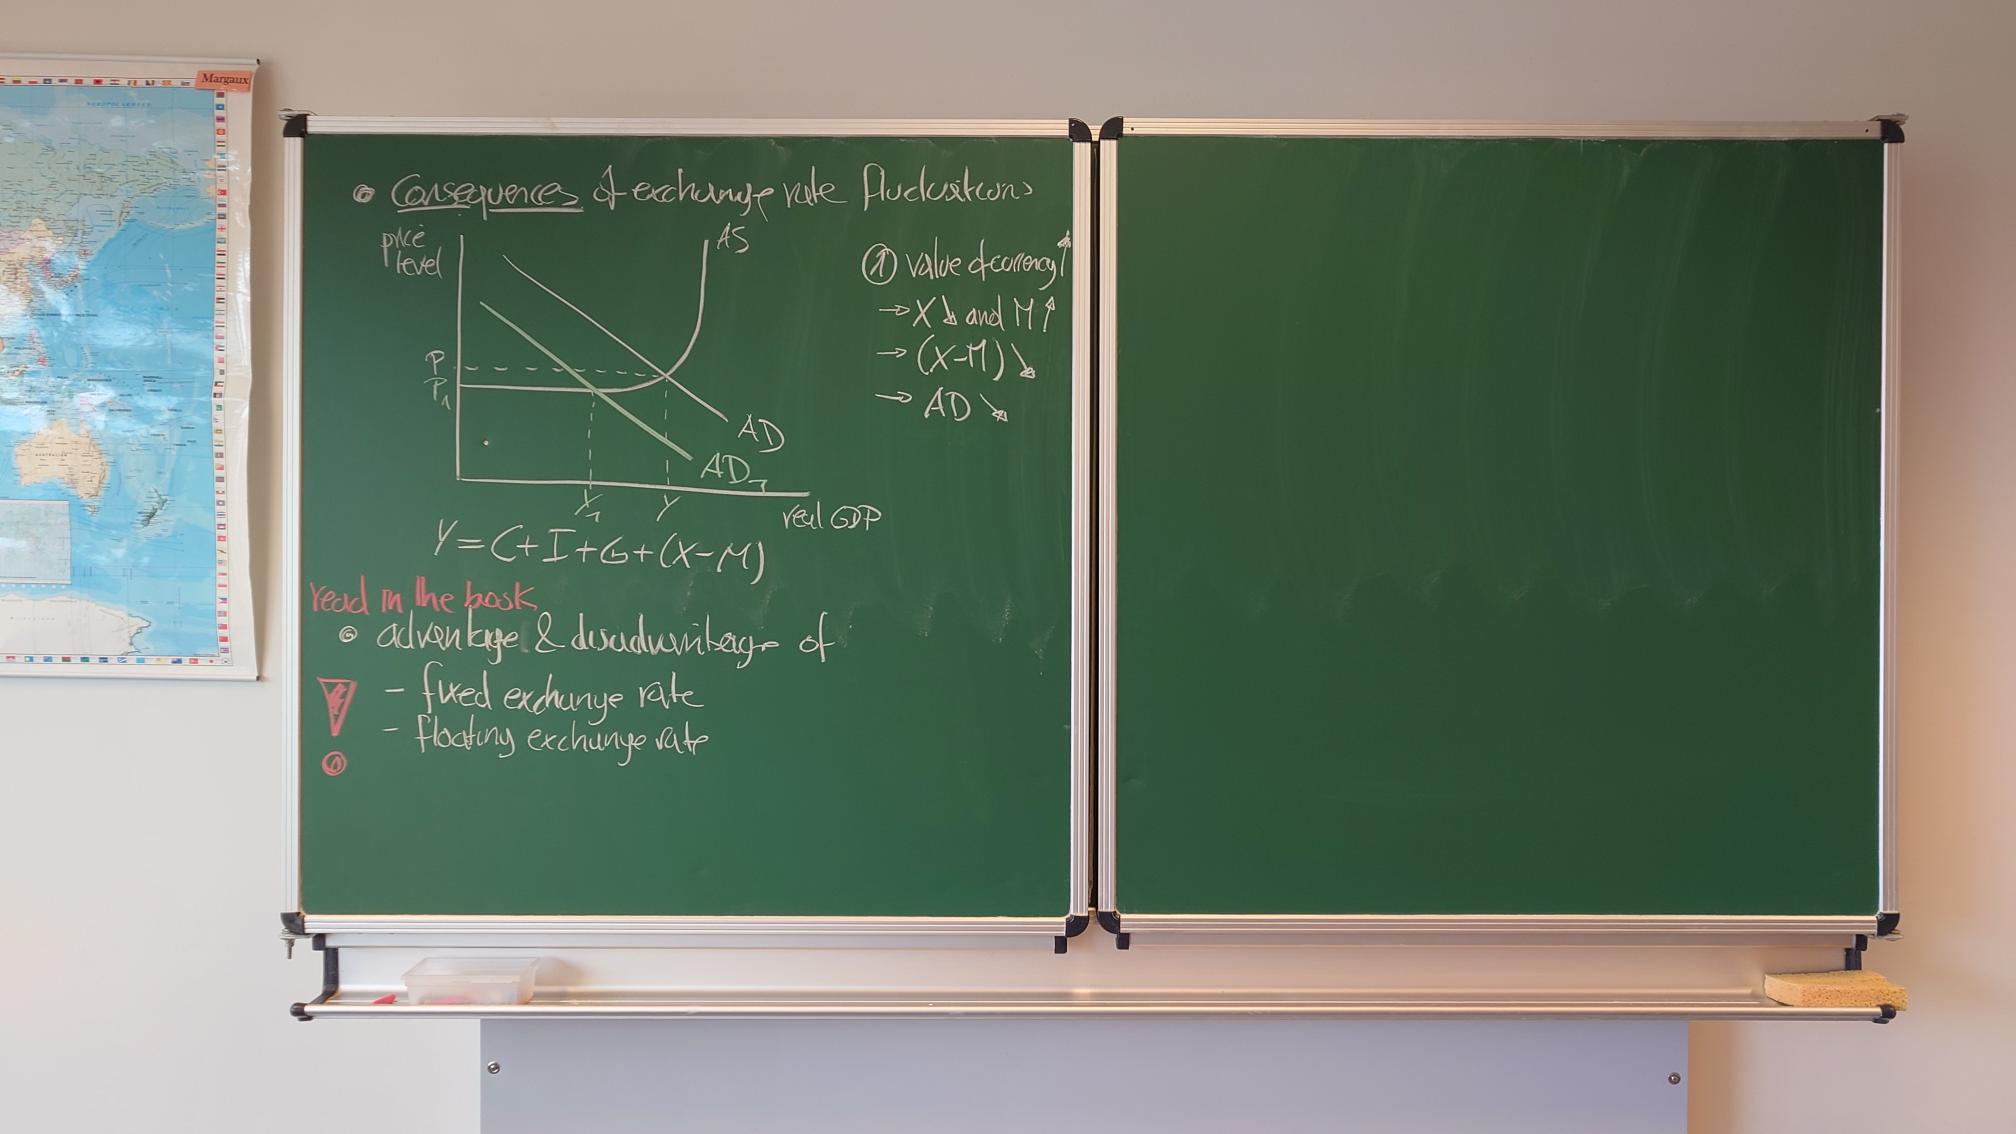 Margaux
NORDPOLARMEER
AUSTRALIEN
Consequences of exchange rate fluctuations
price
level
AS
P
P1
AD
AD1
Y1 Y
real GDP
Y = C + I + G + (X - M)
① value of currency ↑
→ X ↘ and M ↑
→ (X-M) ↘
→ AD ↘
read in the book
advantage & disadvantage of
- fixed exchange rate
- floating exchange rate